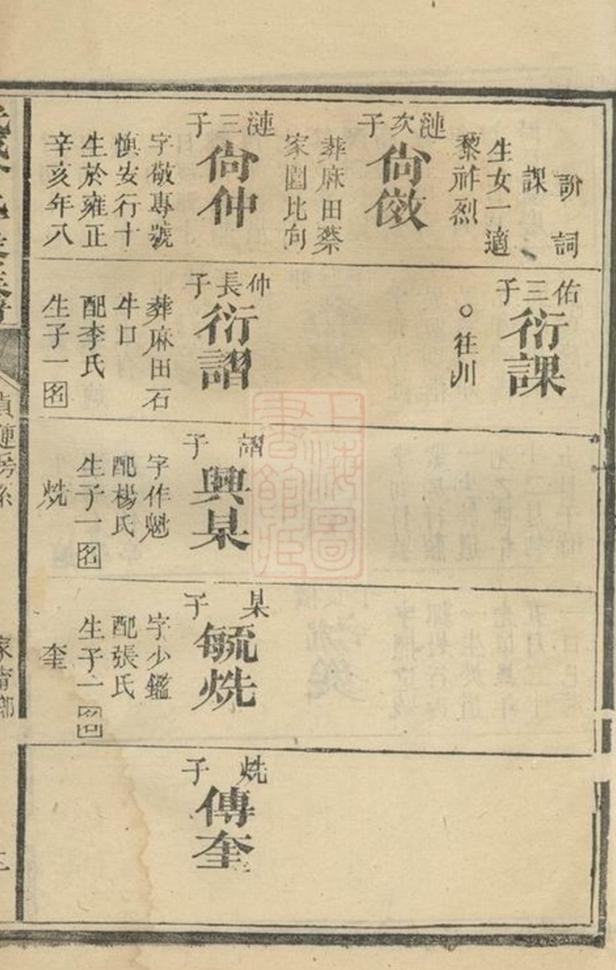 訜詞
課
生女一適
黎祚烈
漣次子
尙儌
葬麻田蔡
家園比向
漣三子
尙仲
字敬專號
愼安行十
生於雍正
辛亥年八
佑三子
衍課
○往川
仲長子
衍謵
葬麻田石
牛口
配李氏
生子一名
謵子
興杲
字作魁
配楊氏
生子一名
烍
杲子
毓烍
字少鑑
配張氏
生子一名回
奎
烍子
傳奎
上海圖書館藏